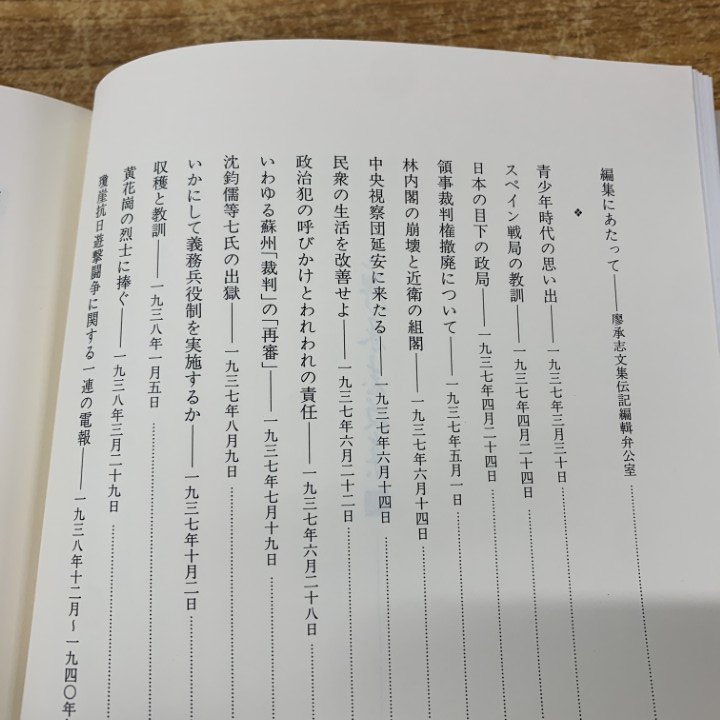 編集にあたって――廖承志文集伝記編輯弁公室
❖
青少年時代の思い出――一九三七年三月三十日
スペイン戦局の教訓――一九三七年四月二十四日
日本の目下の政局――一九三七年四月二十四日
領事裁判権撤廃について――一九三七年五月一日
林内閣の崩壊と近衛の組閣――一九三七年六月十四日
中央視察団延安に来たる――一九三七年六月十四日
民衆の生活を改善せよ――一九三七年六月二十二日
政治犯の呼びかけとわれわれの責任――一九三七年六月二十八日
いわゆる蘇州「裁判」の「再審」――一九三七年七月十九日
沈鈞儒等七氏の出獄――一九三七年八月九日
いかにして義務兵役制を実施するか――一九三七年十月二日
収穫と教訓――一九三八年一月五日
黄花崗の烈士に捧ぐ――一九三八年三月二十九日
瓊崖抗日遊撃闘争に関する一連の電報――一九三八年十二月～一九四〇年